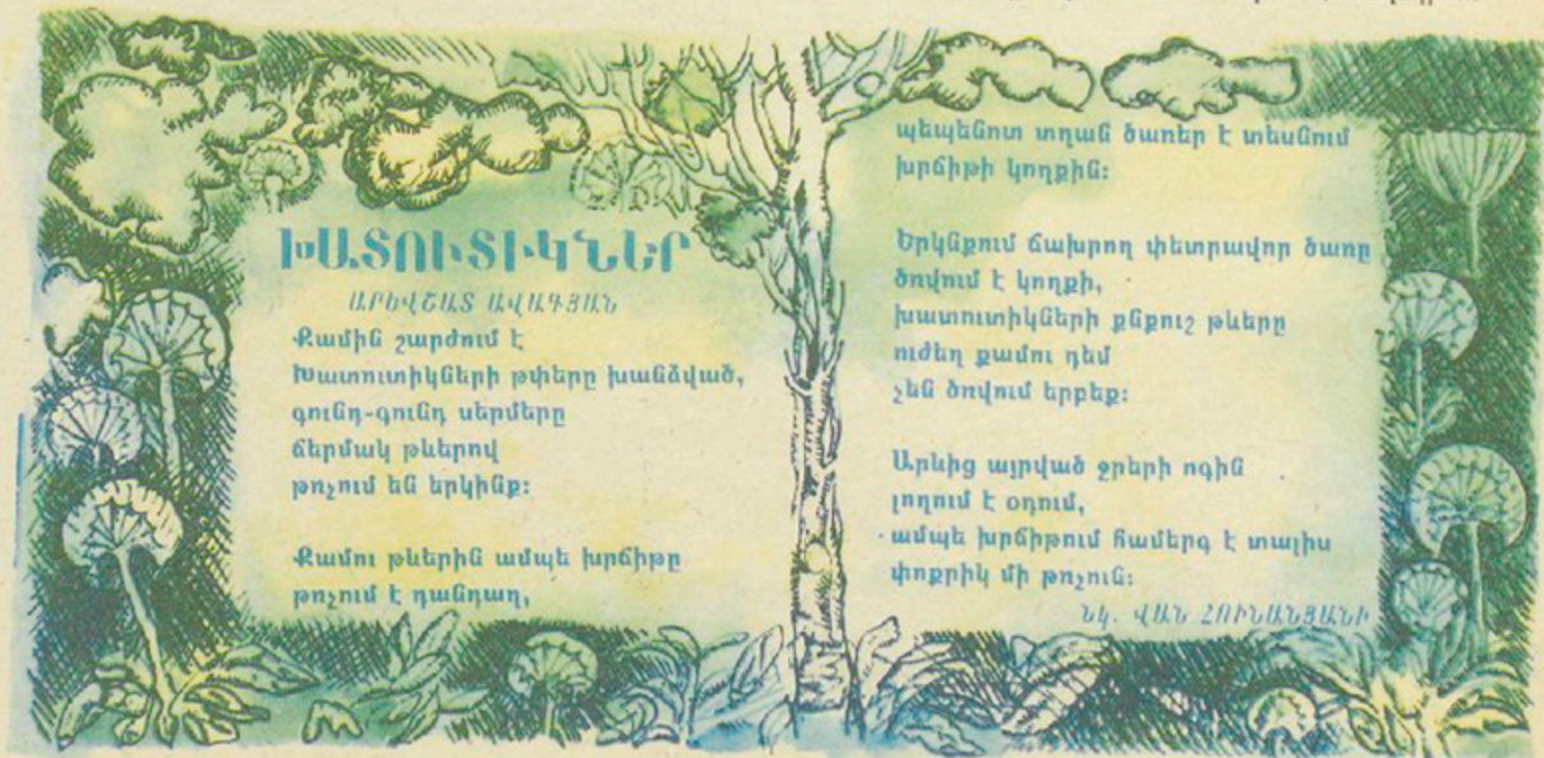 ԽԱՏՈՒՏԻԿՆԵՐ
ԱՐԵՎՇԱՏ ԱՎԱԳՅԱՆ
Քամին շարժում է
Խատուտիկների թփերը խանձված,
գունդ-գունդ սերմերը
ճերմակ թևերով
թռչում են երկինք:
Քամու թևերին ամպե խրճիթը
թռչում է դանդաղ,
պեպենոտ տղան ծառեր է տեսնում
խրճիթի կողքին:
Երկնքում ճախրող փետրավոր ծառը
ծռվում է կողքի,
խատուտիկների քնքուշ թևերը
ուժեղ քամու դեմ
չեն ծռվում երբեք:
Արևից այրված ջրերի ոգին
լողում է օդում,
ամպե խրճիթում համերգ է տալիս
փոքրիկ մի թռչուն:
Նկ. ՎԱՆ ՀՈՒՆԱՆՅԱՆԻ